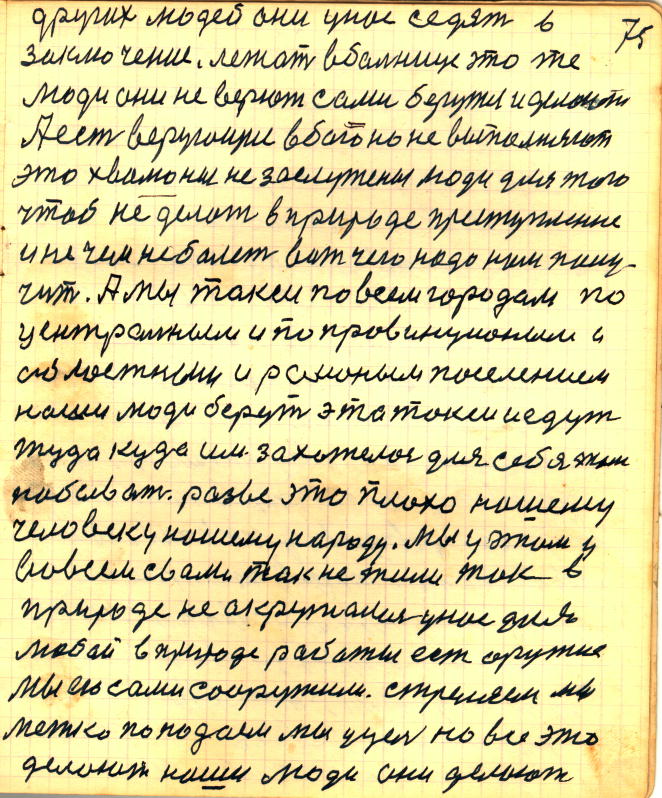 других людей они унос седят в 75
заключение. лежат в балнице это те
люди они не верют сами берут и делают
А ест верующие в бага но не выполняют
это хвалоны не заслужены люди для того
чтоб не делат в природе преступление
и не чем не балет вот чего надо нам полу-
чит. А мы такси по всем городам по
центральным и по провинционым и
областным и районым поселением
наши люди берут эта такси и едут
туда куда им захотелос для себя там
побыват. разве это плохо нашему
человеку нашему народу. мы у этом у
во всем с вами так не жили так в
природе не акружался унас для
любой в природе работы ест оружие
мы ею сами сооружили. стреляем мы
метко пападаем мы у цел но все это
делают наши люди они делают